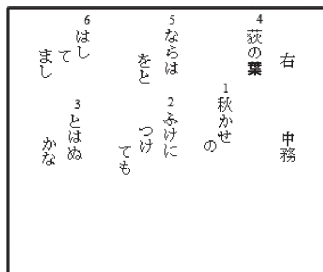 右 中務
4 荻の葉
1 秋かせ
の
5 ならは
2 ふけに
をと
つけ
ても
6 はし
て
まし
3 とはぬ
かな